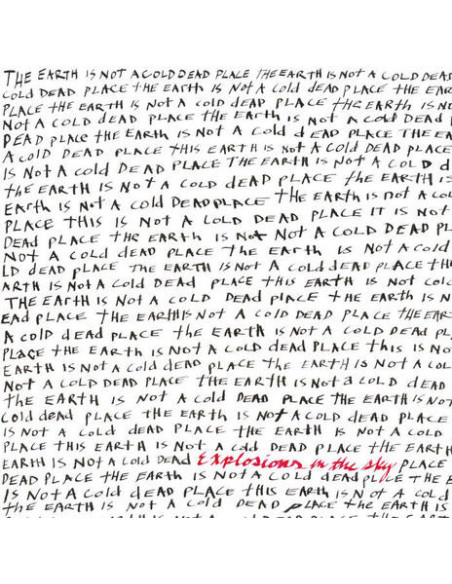 THE EARTH IS NOT A COLD DEAD PLACE THE EARTH IS NOT A COLD DEAD
COLD DEAD PLACE THE EARTH IS NOT A COLD DEAD PLACE THE EAR
PLACE THE EARTH IS NOT A COLD DEAD PLACE THE EARTH IS NO
NOT A COLD DEAD PLACE THE EARTH IS NOT A COLD DEAD
DEAD PLACE THE EARTH IS NOT A COLD DEAD PLACE THE EA
A COLD DEAD PLACE THIS EARTH IS NOT A COLD DEAD PLACE
IS NOT A COLD DEAD PLACE THE EARTH IS NOT A COLD D
THE EARTH IS NOT A COLD DEAD PLACE THE EARTH IS
EARTH IS NOT A COLD DEAD PLACE THE EARTH IS NOT A COL
PLACE THIS IS NOT A COLD DEAD PLACE IT IS NOT
DEAD PLACE THE EARTH IS NOT NOT A COLD DEAD PL
NOT A COLD DEAD PLACE THE EARTH IS NOT A COLD
LD DEAD PLACE THE EARTH IS NOT A COLD DEAD PLACE TH
ARTH IS NOT A COLD DEAD PLACE THIS EARTH IS NOT COLD
THE EARTH IS NOT A COLD DEAD PLACE THE EARTH IS N
EAD PLACE THE EARTH IS NOT A COLD DEAD PLACE THE EAR
A COLD DEAD PLACE THE EARTH IS NOT A COLD DEAD PL
PLACE THE EARTH IS NOT A COLD DEAD PLACE THIS IS NO
EARTH IS NOT A COLD DEAD PLACE THE EARTH IS NOT A COL
NOT A COLD DEAD PLACE THE EARTH IS NOT A COLD DEAD
THE EARTH IS NOT A COLD DEAD PLACE THE EARTH IS NOT
COLD DEAD PLACE THE EARTH IS NOT A COLD DEAD PLACE
IS NOT A COLD DEAD PLACE THE EARTH IS NOT A COLD
PLACE THIS EARTH IS NOT A COLD DEAD PLACE THE EARTH
EARTH IS NOT A COLD DEAD Explosions in the sky PLACE
DEAD PLACE THE EARTH IS NOT A COLD DEAD PLACE THE E
IS NOT A COLD DEAD PLACE THIS EARTH IS NOT A COLD
THE EARTH IS NOT A COLD DEAD PLACE THE EARTH IS NOT